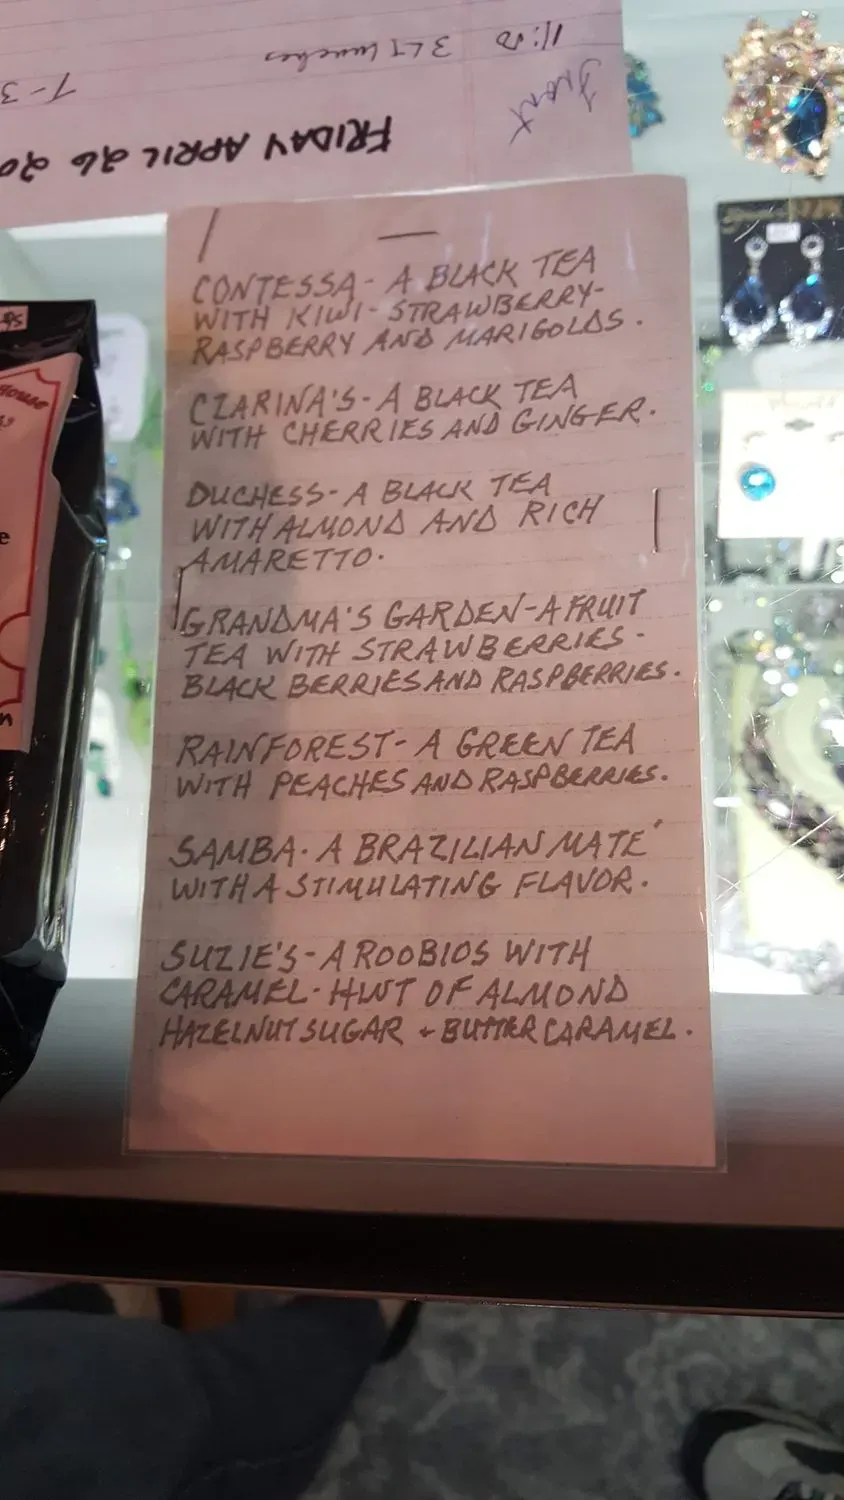 11:00 3 LT lunches
Front
T-3
FRIDAY APRIL 26 20
CONTESSA - A BLACK TEA
WITH KIWI - STRAWBERRY -
RASPBERRY AND MARIGOLDS.
CZARINA'S - A BLACK TEA
WITH CHERRIES AND GINGER.
DUCHESS - A BLACK TEA
WITH ALMOND AND RICH
AMARETTO.
GRANDMA'S GARDEN - A FRUIT
TEA WITH STRAWBERRIES -
BLACK BERRIES AND RASPBERRIES.
RAINFOREST - A GREEN TEA
WITH PEACHES AND RASPBERRIES.
SAMBA - A BRAZILIAN MATE'
WITH A STIMULATING FLAVOR.
SUZIE'S - A ROOBIOS WITH
CARAMEL - HINT OF ALMOND
HAZELNUT SUGAR + BUTTER CARAMEL.